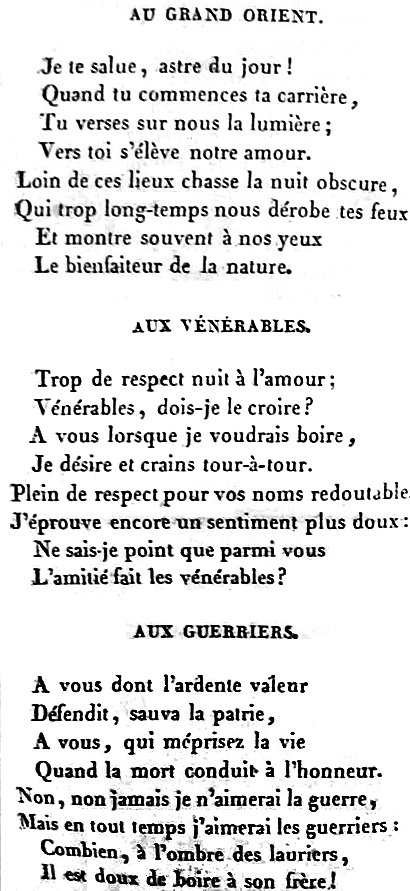 AU GRAND ORIENT.
Je te salue, astre du jour!
Quand tu commences ta carrière,
Tu verses sur nous la lumière;
Vers toi s'élève notre amour.
Loin de ces lieux chasse la nuit obscure,
Qui trop long-temps nous dérobe tes feux
Et montre souvent à nos yeux
Le bienfaiteur de la nature.
AUX VÉNÉRABLES.
Trop de respect nuit à l'amour;
Vénérables, dois-je le croire?
A vous lorsque je voudrais boire,
Je désire et crains tour-à-tour.
Plein de respect pour vos noms redoutable
J'éprouve encore un sentiment plus doux:
Ne sais-je point que parmi vous
L'amitié fait les vénérables?
AUX GUERRIERS.
A vous dont l'ardente valeur
Défendit, sauva la patrie,
A vous, qui méprisez la vie
Quand la mort conduit à l'honneur.
Non, non jamais je n'aimerai la guerre,
Mais en tout temps j'aimerai les guerriers:
Combien, à l'ombre des lauriers,
Il est doux de boire à son frère!